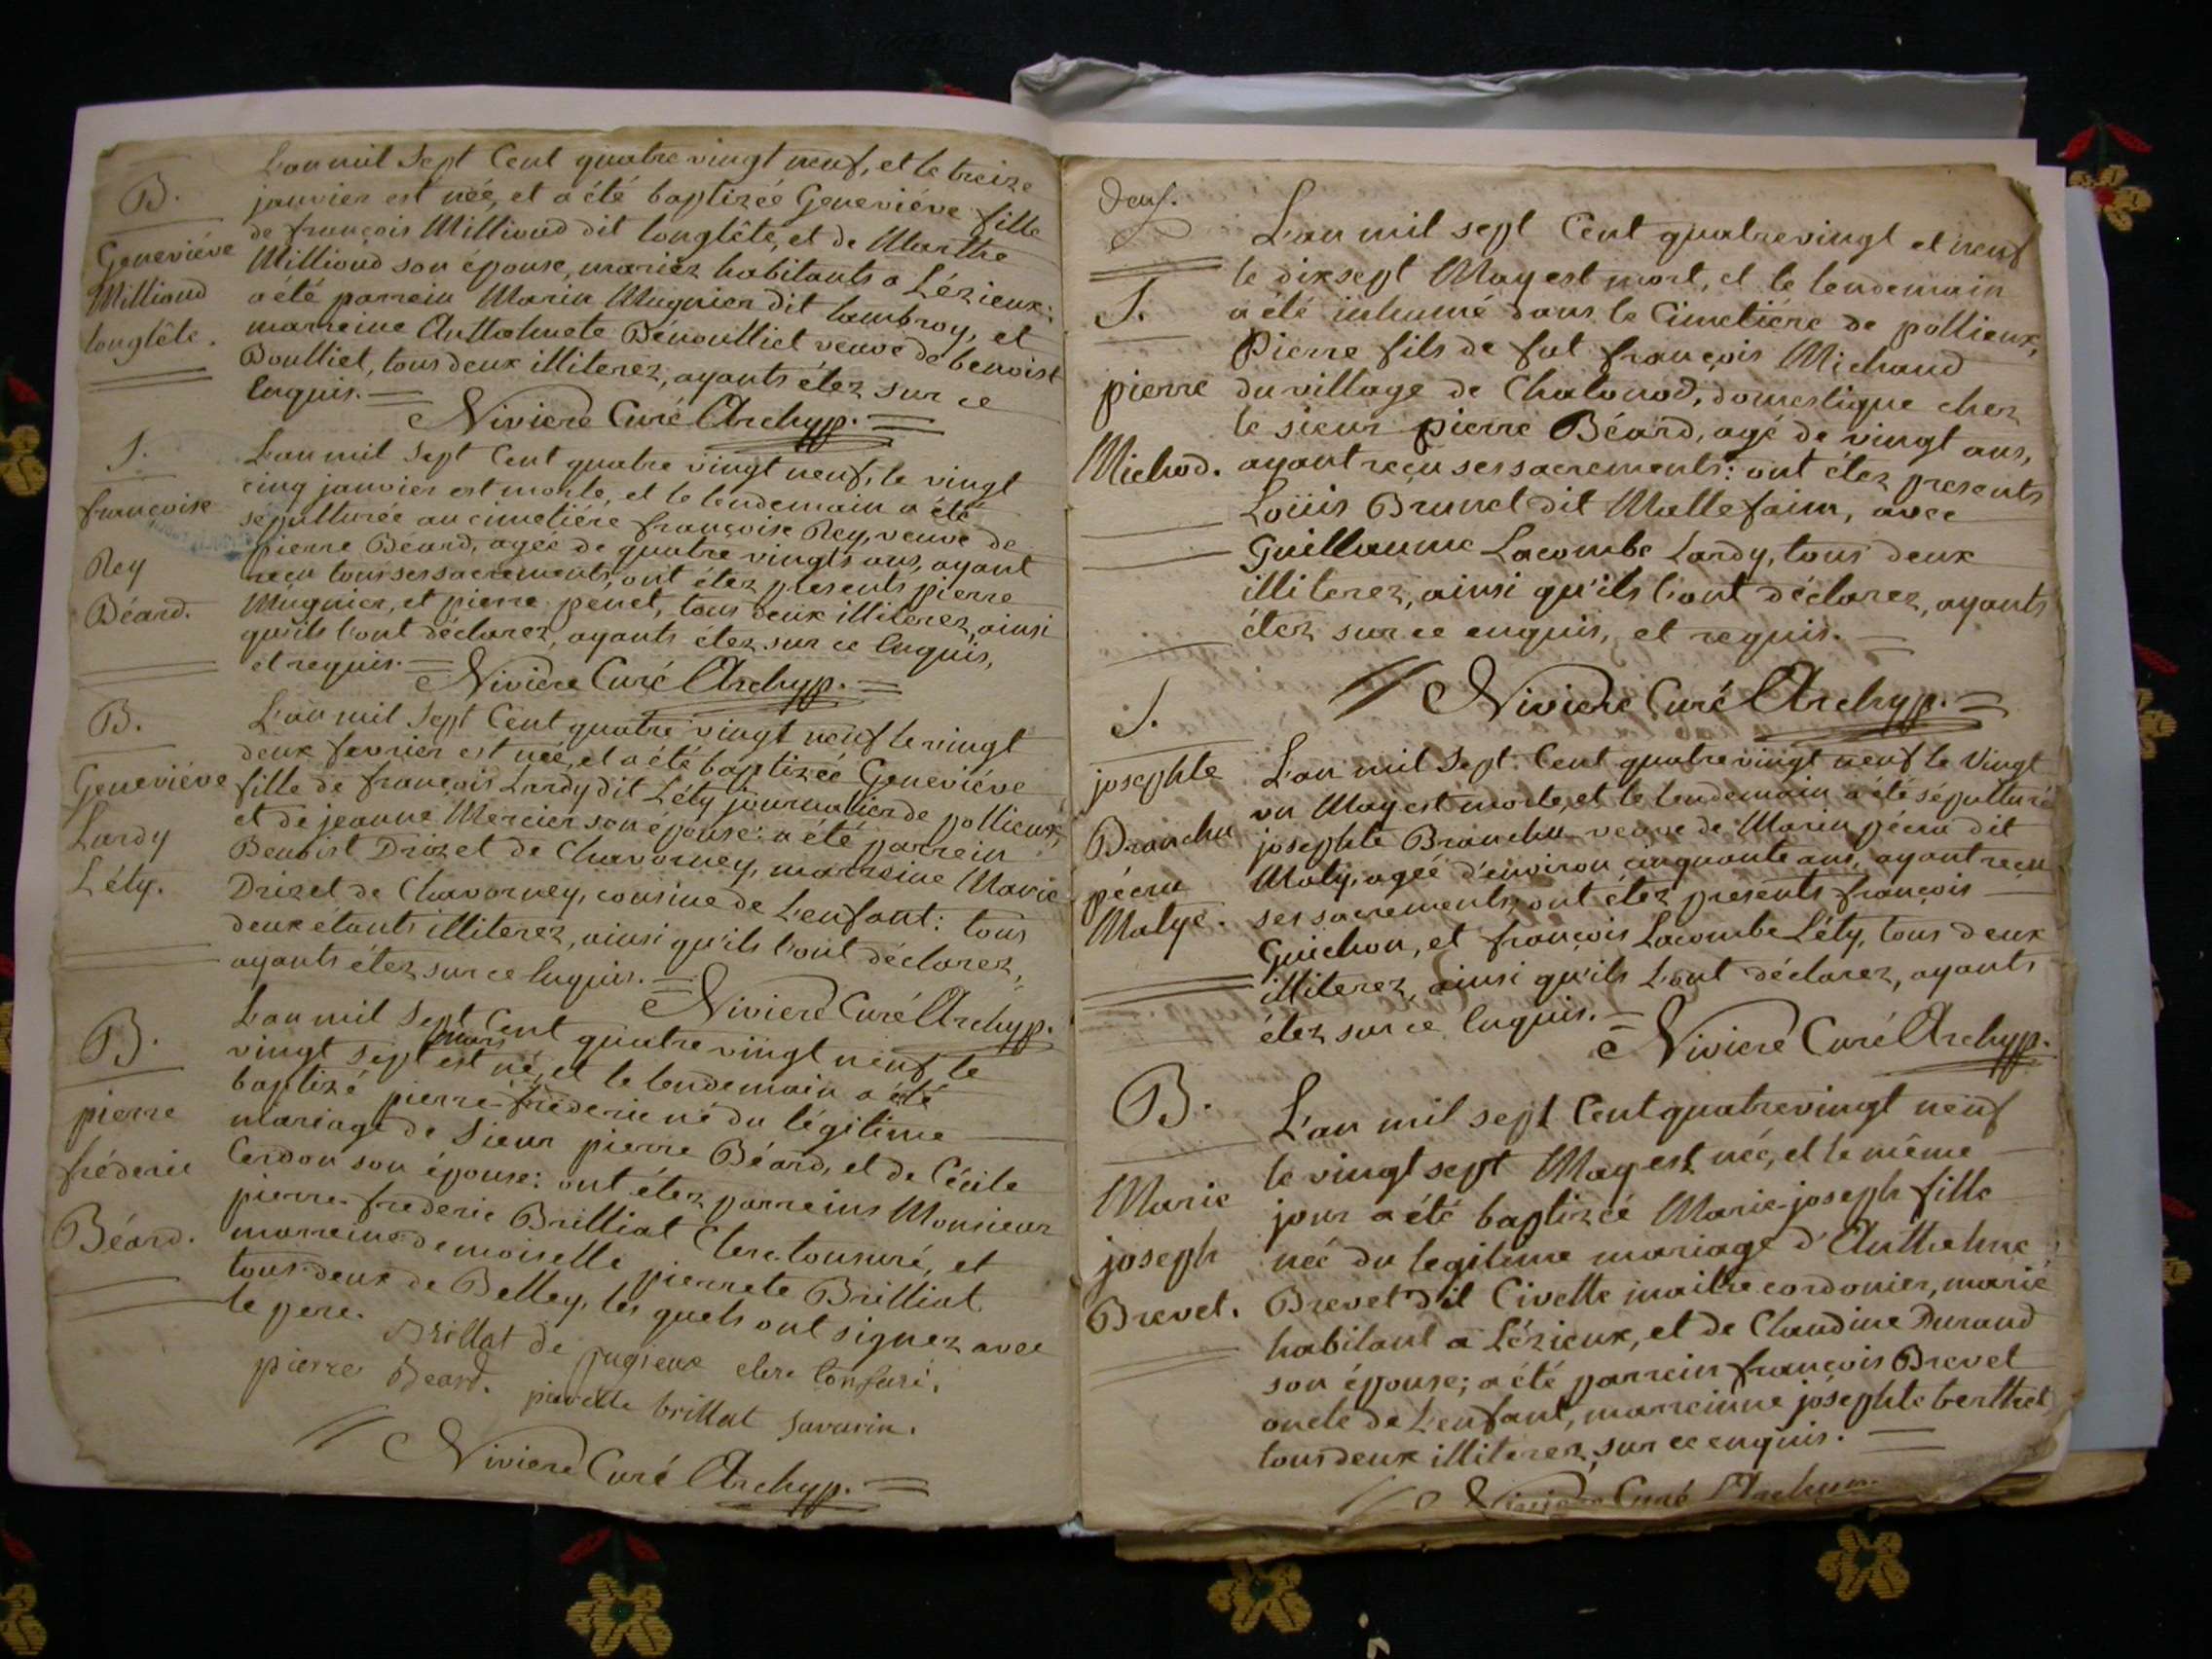 B.
Geneviéve
Milliond
longlête.
L'an mil Sept Cent quatre vingt neuf, et le treize
janvier est née, et a été baptizée Geneviéve fille
de françois Milliond dit longlête, et de Marthe
Milliond son épouse, mariez habitants a Lézieux:
a été parrein Marin Mugnier dit lambroy, et
marreine Anthelmete Bénoulliet veuve de benoist
Boulliet, tous deux illiterez, ayants étez sur ce
Enquis.
Niviere Curé Archyp.
S.
françoise
Rey
Béard.
L'an mil Sept Cent quatre vingt neuf, le vingt
cinq janvier est morte, et le lendemain a été
sepulturée au cimetiére françoise Rey, veuve de
pierre Béard, agée de quatre vingts ans, ayant
reçu tous ses sacrements, ont étez presents pierre
Mugnier, et pierre pénet, tous deux illiterez, ainsi
qu'ils l'ont déclarez, ayants étez sur ce Enquis,
et requis.
Niviere Curé Archyp.
B.
Geneviéve
Lardy
Léty.
L'an mil Sept Cent quatre vingt neuf le vingt
deux fevrier est née, et a été baptizée Geneviéve
fille de françois Lardy dit Léty journalier de pollieux,
et de jeanne Mercier son épouse: a été parrein
Benoist Drizet de Chavorney, marreine Marie
Drizet de Chavorney, cousine de L'enfant: tous
deux étants illiterez, ainsi qu'ils l'ont déclarez,
ayants étez sur ce Enquis.
Niviere Curé Archyp.
B.
pierre
fréderic
Béard.
L'an mil Sept Cent quatre vingt neuf, le
vingt sept mars est né, et le lendemain a été
baptizé pierre-fréderic né du légitime
mariage de Sieur pierre Béard, et de Cécile
Cerdon son épouse: ont étez parreins Monsieur
pierre-frederic Brilliat Clerc tonsuré, et
marreine demoiselle pierrete Brilliat
tous deux de Belley, les quels ont signez avec
le pere.
Brillat de pugieux clerc tonsuré.
pierre Beard. pierrette brillat Savarin.
Niviere Curé Archyp.
deux.
S.
pierre
Michod.
L'an mil sept Cent quatrevingt et neuf
le dixsept May est mort, et le lendemain
a été inhumé dans le Cimetiére de pollieux,
Pierre fils de fut françois Michaud
du village de Chalonod, domestique chez
le sieur pierre Béard, agé de vingt ans,
ayant reçu ses sacrements: ont étez presents
Loüis Brunet dit Mallefaim, avec
Guillaume Lacombe Lardy, tous deux
illiterez, ainsi qu'ils l'ont déclarez, ayants
étez sur ce enquis, et requis.
Niviere Curé Archyp.
S.
josephte
Branchu
pécru
Matyé.
L'an mil Sept Cent quatrevingt neuf le Vingt
un May est morte, et le lendemain a été sépulturé
josephte Branchu veuve de Marin pécru dit
Maty, agée d'environ cinquante ans, ayant reçu
ses sacrements, ont étez presents françois
Guichon, et françois Lacombe Léty, tous deux
illiterez, ainsi qu'ils L'ont déclarez, ayants
étez sur ce Enquis.
Niviere Curé Archyp.
B.
Marie
joseph
Brevet.
L'an mil sept Cent quatrevingt neuf
le vingt sept May est née, et le même
jour a été baptizée Marie-joseph fille
née du legitime mariage d'Anthelme
Brevet dit Civette maitre cordonier, marié
habitant a Lézieux, et de Claudine Durand
son épouse; a été parrein françois Brevet
oncle de L'enfant, marreinne joséphte berthet
tous deux illiterez, sur ce enquis.
Niviere Curé Archyp.